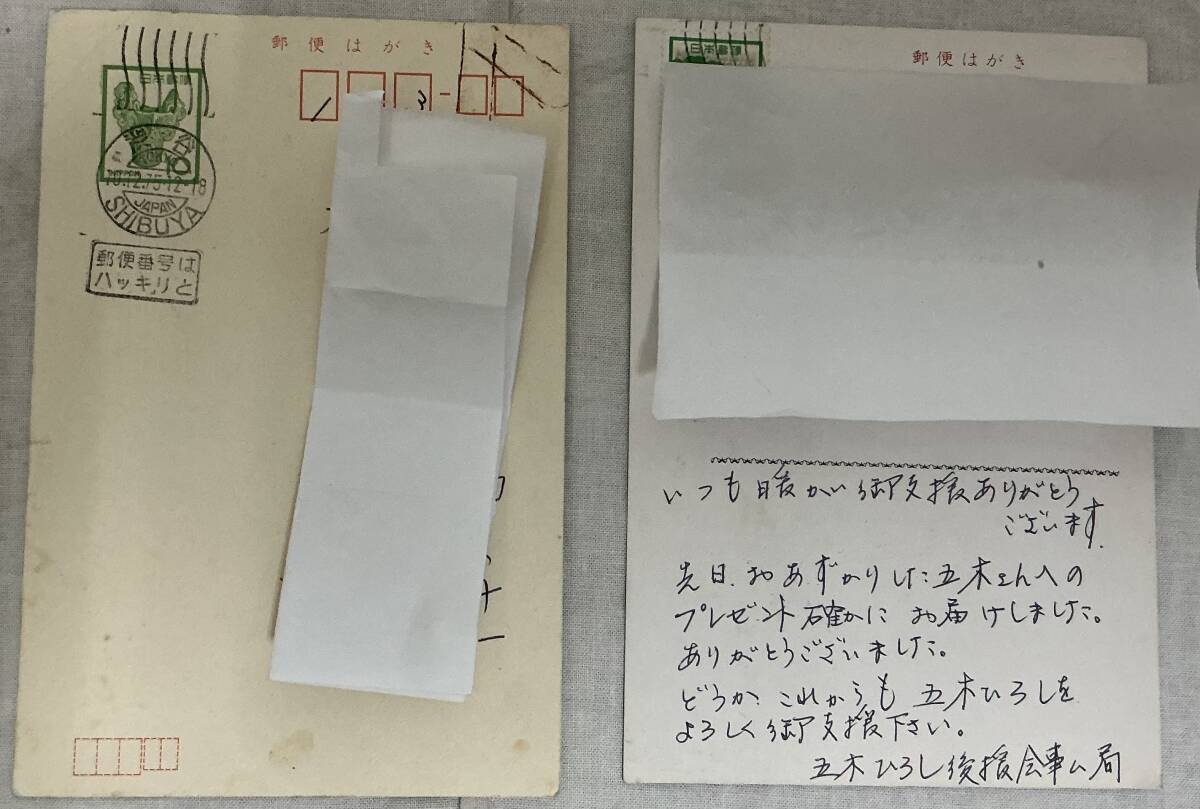 郵便はがき
日本郵便
10
NIPPON
渋谷
10.12.75 12-18
JAPAN
SHIBUYA
郵便番号は
ハッキリと
1 3
一
郵便はがき
日本郵便
いつも暖かい御支援ありがとう
ございます.
先日.おあずかりした五木さんへの
プレゼント確かに お届けしました。
ありがとうございました。
どうか.これからも 五木ひろしを
よろしく御支援下さい。
五木ひろし後援会事ム局